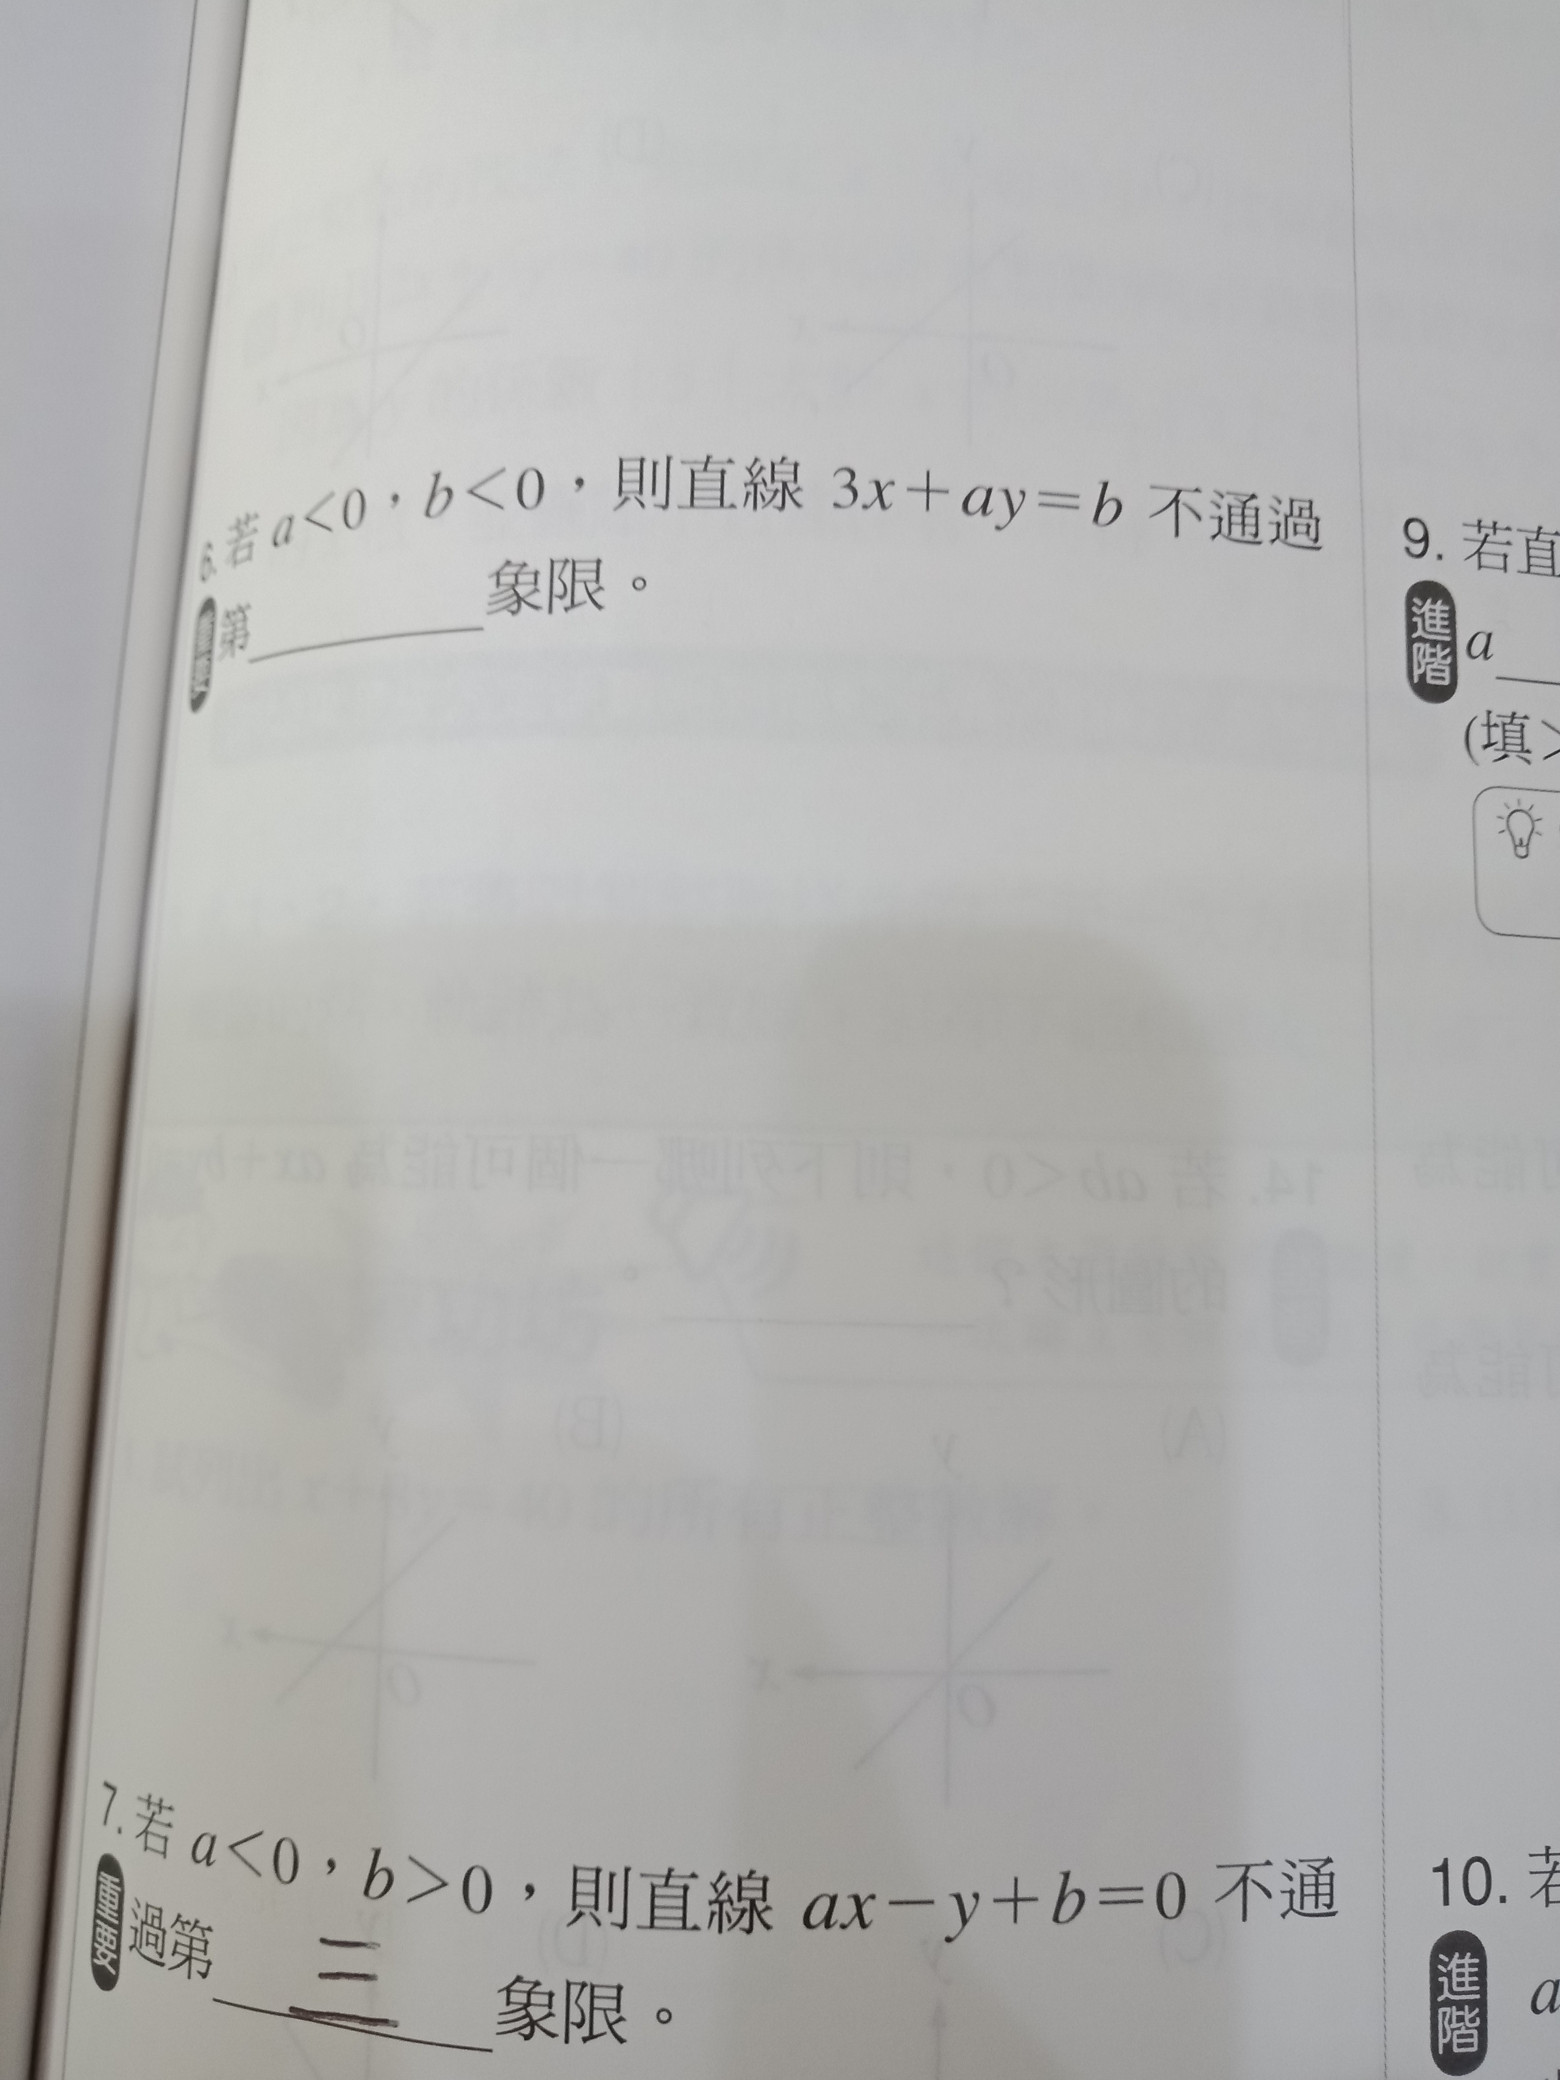 6. 若 a<0，b<0，則直線 3x+ay=b 不通過
第______象限。
7. 若 a<0，b>0，則直線 ax−y+b=0 不通
重要 過第 三 象限。
9. 若直
進階 a
(填>
10. 若
進階 a